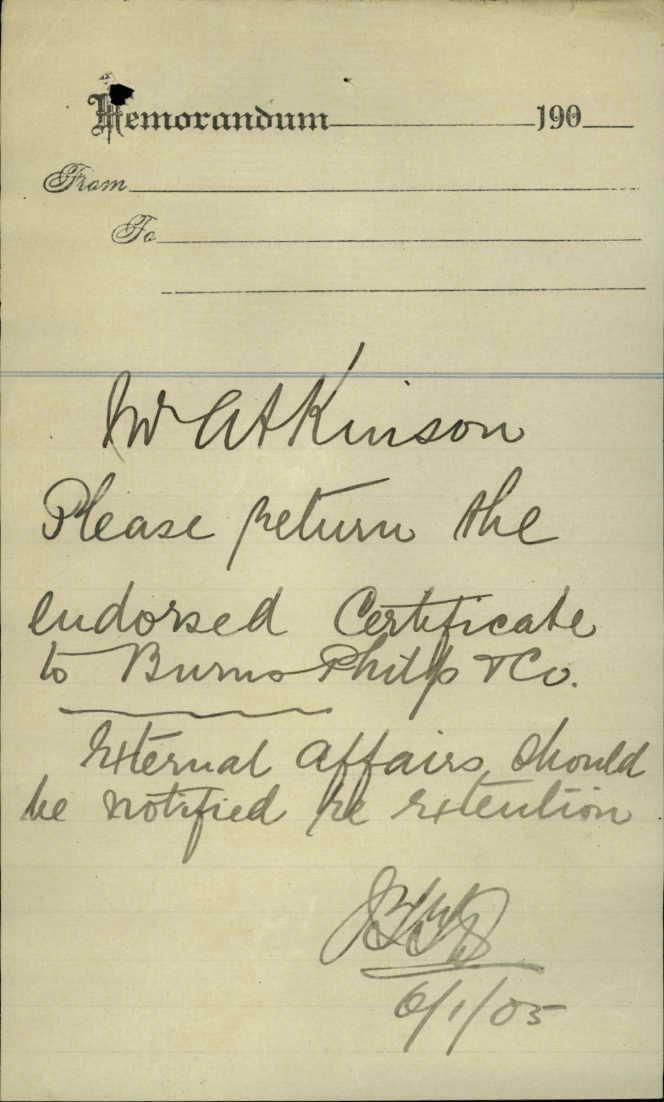 Memorandum 190
From
To
Mr Atkinson
Please return the
endorsed Certificate
to Burns Philp & Co.
External Affairs should
be notified re extention
6/1/05